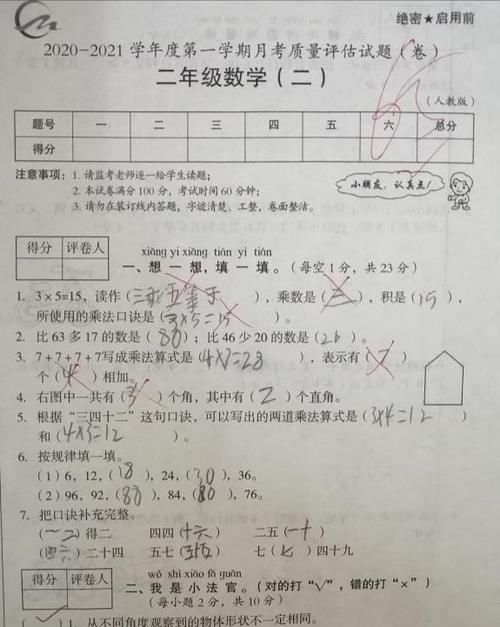 绝密★启用前
2020-2021学年度第一学期月考质量评估试题(卷)
二年级数学(二)
(人教版)
题号 一 二 三 四 五 六 总分
得分
注意事项:1. 请监考老师逐一给学生读题;
2. 本试卷满分100分,考试时间60分钟;
3. 请勿在装订线内答题,字迹清楚、工整,卷面整洁。
小朋友,认真点!
得分 评卷人
xiǎng yi xiǎng tián yi tián
一、想一想,填一填。(每空1分,共23分)
1. 3×5=15,读作(三乘五等于),乘数是(三),积是(15),
所使用的乘法口诀是(3×5=15)。
2. 比63多17的数是(80);比46少20的数是(26)。
3. 7+7+7+7写成乘法算式是(4×7=28),表示有(7)
个(4)相加。
4. 右图中一共有(3)个角,其中有(2)个直角。
5. 根据“三四十二”这句口诀,可以写出的两道乘法算式是(3×4=12)
和(4×3=12)。
6. 按规律填一填。
(1)6,12,(18),24,(30),36。
(2)96,92,(88),84,(80),76。
7. 把口诀补充完整。
(一二)得二 四四(十六) 二五(一十)
(四六)二十四 五七(三十五) 七(七)四十九
得分 评卷人
wǒ shì xiǎo fǎ guān
二、我是小法官。(对的打“√”,错的打“×”)
(每小题2分,共10分)
( )1. 从不同角度观察到的物体形状不一定相同。